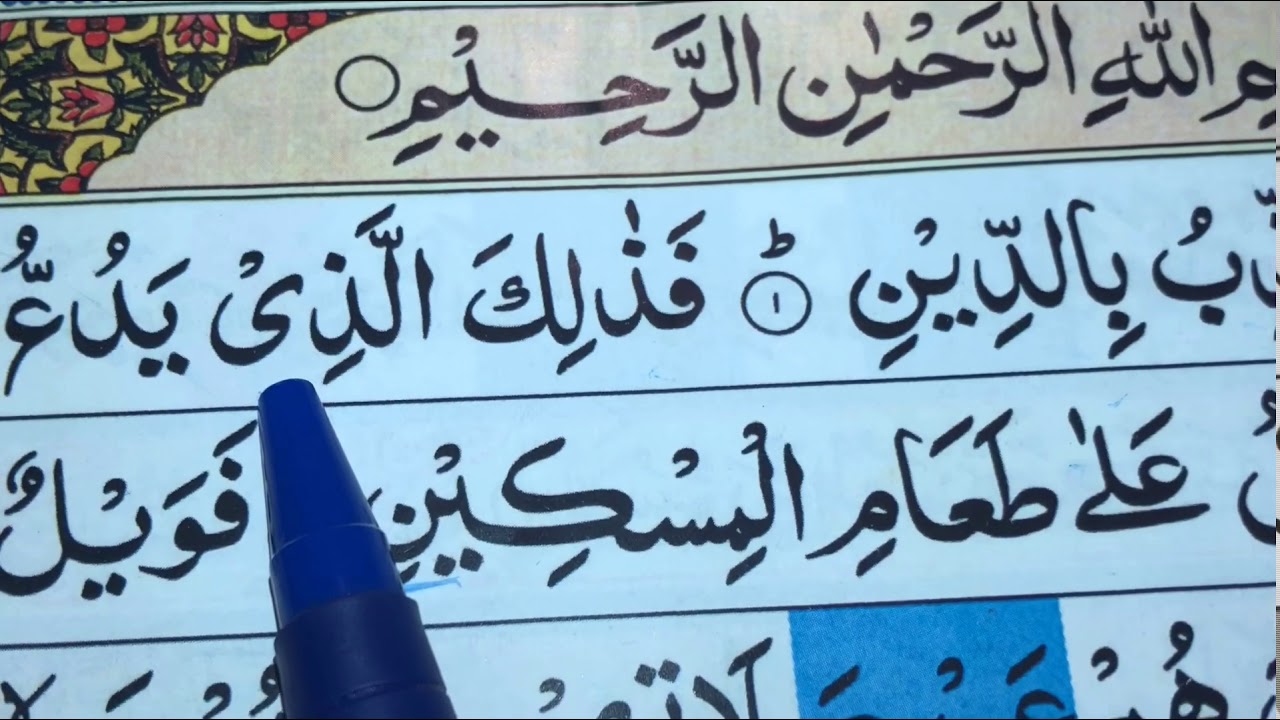 اللّٰهِ الرَّحْمٰنِ الرَّحِيْمِ ۝
بُ بِالدِّيْنِ ؕ‏ ۝۱ فَذٰلِكَ الَّذِىْ يَدُعُّ
عَلٰى طَعَامِ الْمِسْكِيْنِ فَوَيْلٌ